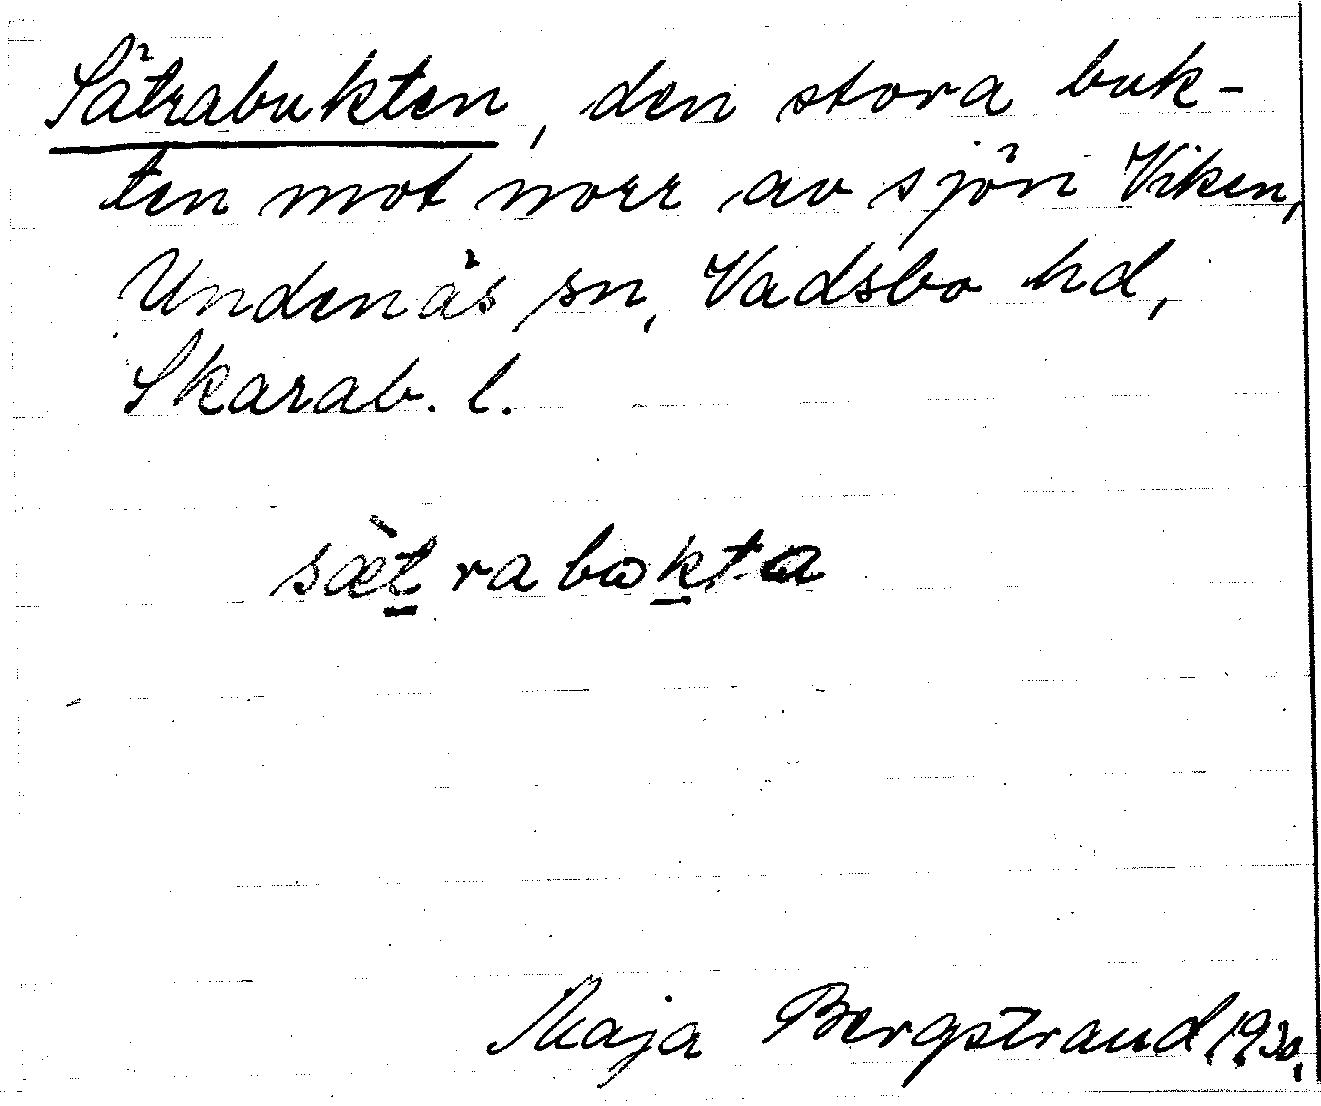 Sätrabukten, den stora buk-
ten mot norr av sjön Viken,
Undenäs sn, Vadsbo hd,
Skarab. l.
sæ̀t̲rabωk̲ta
Maja Bergstrand 1930.